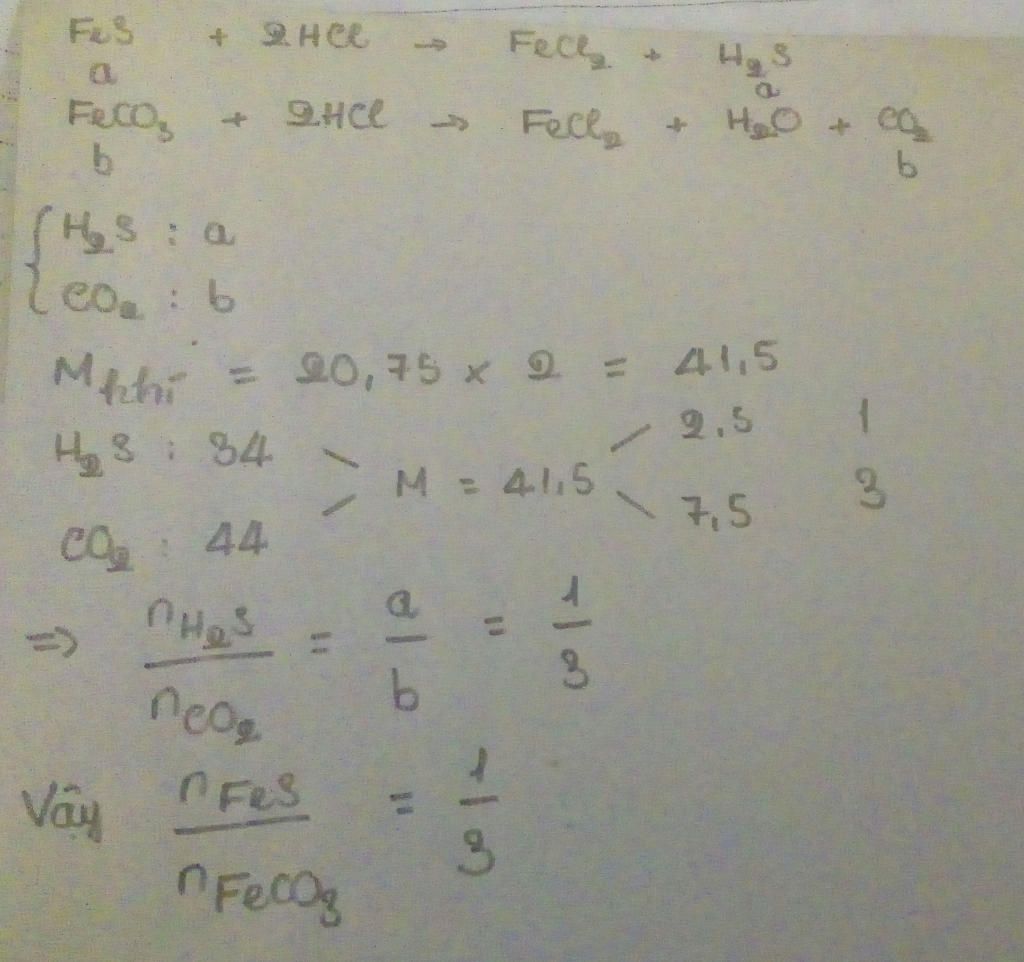 FeS + 2HCl → FeCl₂ + H₂S
a a
FeCO₃ + 2HCl → FeCl₂ + H₂O + CO₂
b b
{ H₂S : a
CO₂ : b
M khí = 20,75 x 2 = 41,5
2,5 1
H₂S : 34
M = 41,5
7,5 3
CO₂ : 44
=> nH₂S / nCO₂ = a / b = 1 / 3
Vậy nFeS / nFeCO₃ = 1 / 3